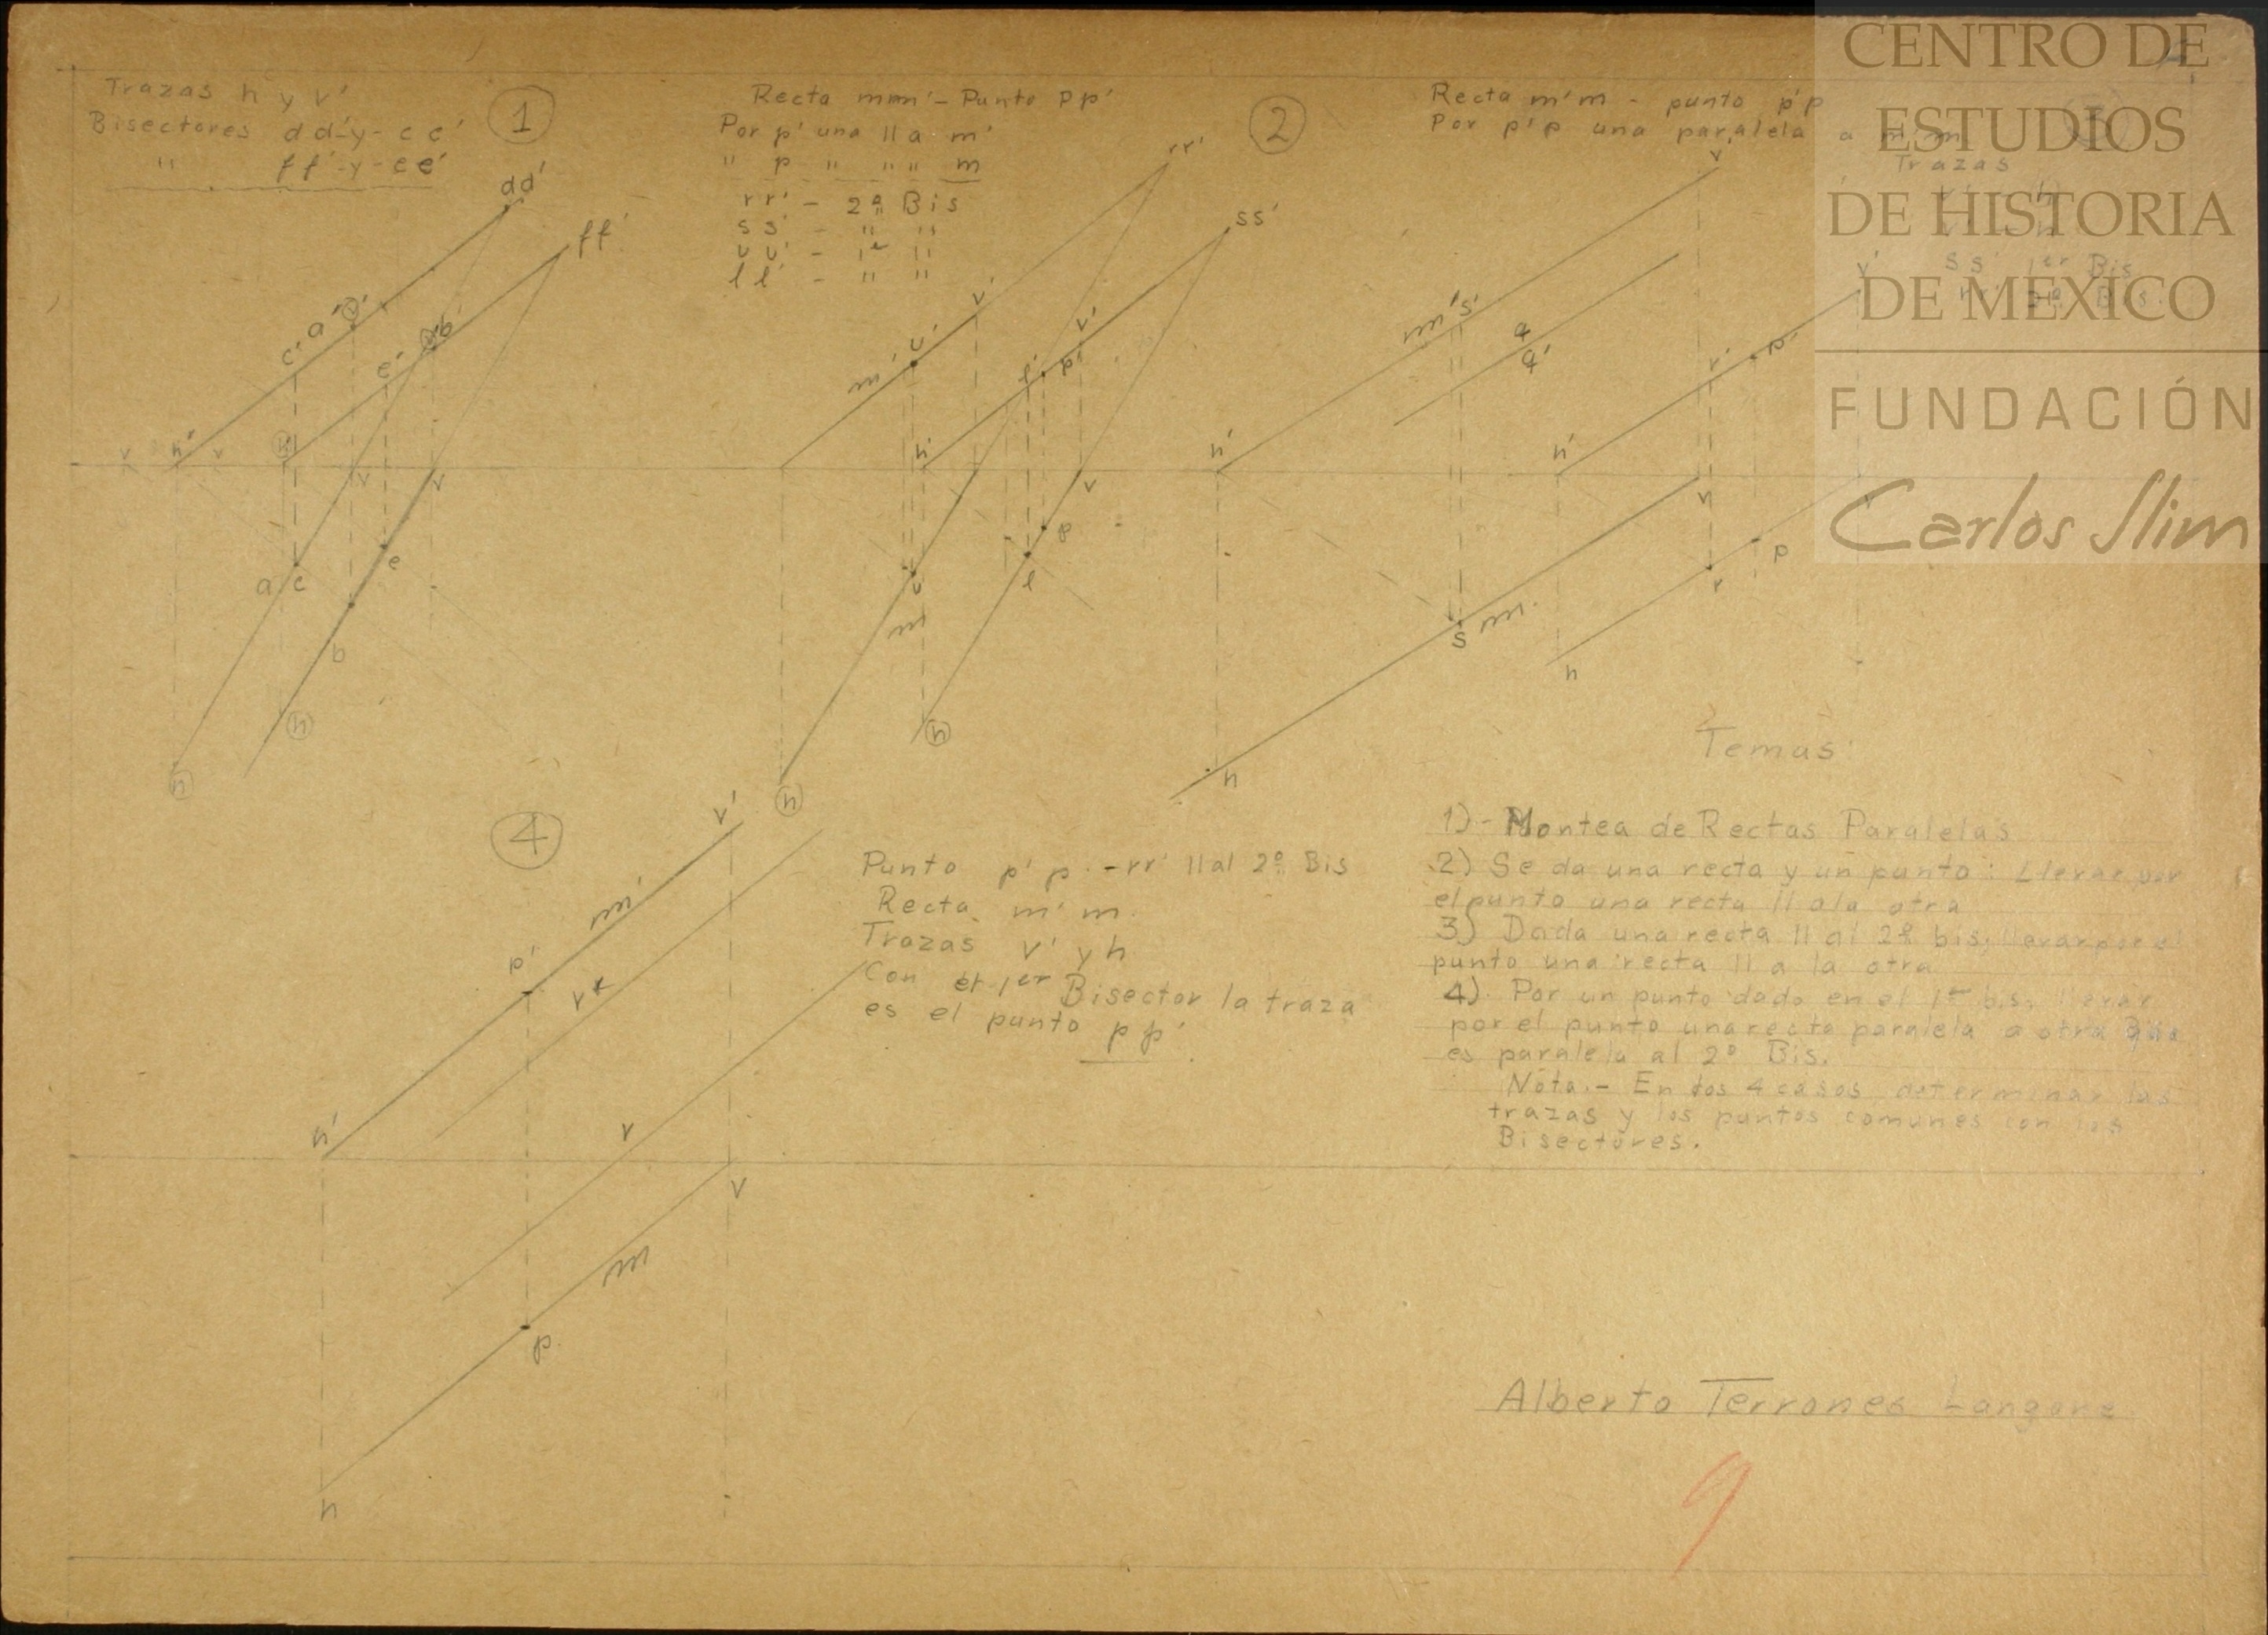 Trazas h y v'
Bisectores dd'-y- cc'
" ff'-y-ee'
1
dd'
ff'
c'
a'
e'
b'
v
h'
v
h'
v
v
a
c
e
b
h
h
Recta mm'- Punto pp'
Por p' una || a m'
" p " " " m
rr' - 2º Bis
ss' - " "
uu' - 1er "
ll' - " "
2
rr'
ss'
v'
u'
m'
v'
l'
p'
h'
v
p
l
u
m
h
h
Recta m'm - punto p'p
Por p'p una paralela a m'm
Trazas
ss' 1er Bis
rr' 2º Bis.
v'
v'
m's'
q
q'
r'
p'
h'
h'
v
v
p
r
s m
h
h
4
v'
m'
p'
r'
h'
r
v
m
p
h
Punto p' p. - rr' || al 2º Bis
Recta m' m.
Trazas v' y h
Con el 1er Bisector la traza
es el punto pp'.
Temas
1)- Montea de Rectas Paralelas
2) Se da una recta y un punto: Llevar por
el punto una recta || a la otra
3) Dada una recta || al 2º bis, llevar por el
punto una recta || a la otra
4). Por un punto dado en el 1er bis, llevar
por el punto una recta paralela a otra que
es paralela al 2º Bis.
Nota.- En los 4 casos, determinar las
trazas y los puntos comunes con los
Bisectores.
Alberto Terrones Langone
9
CENTRO DE
ESTUDIOS
DE HISTORIA
DE MÉXICO
FUNDACIÓN
Carlos Slim